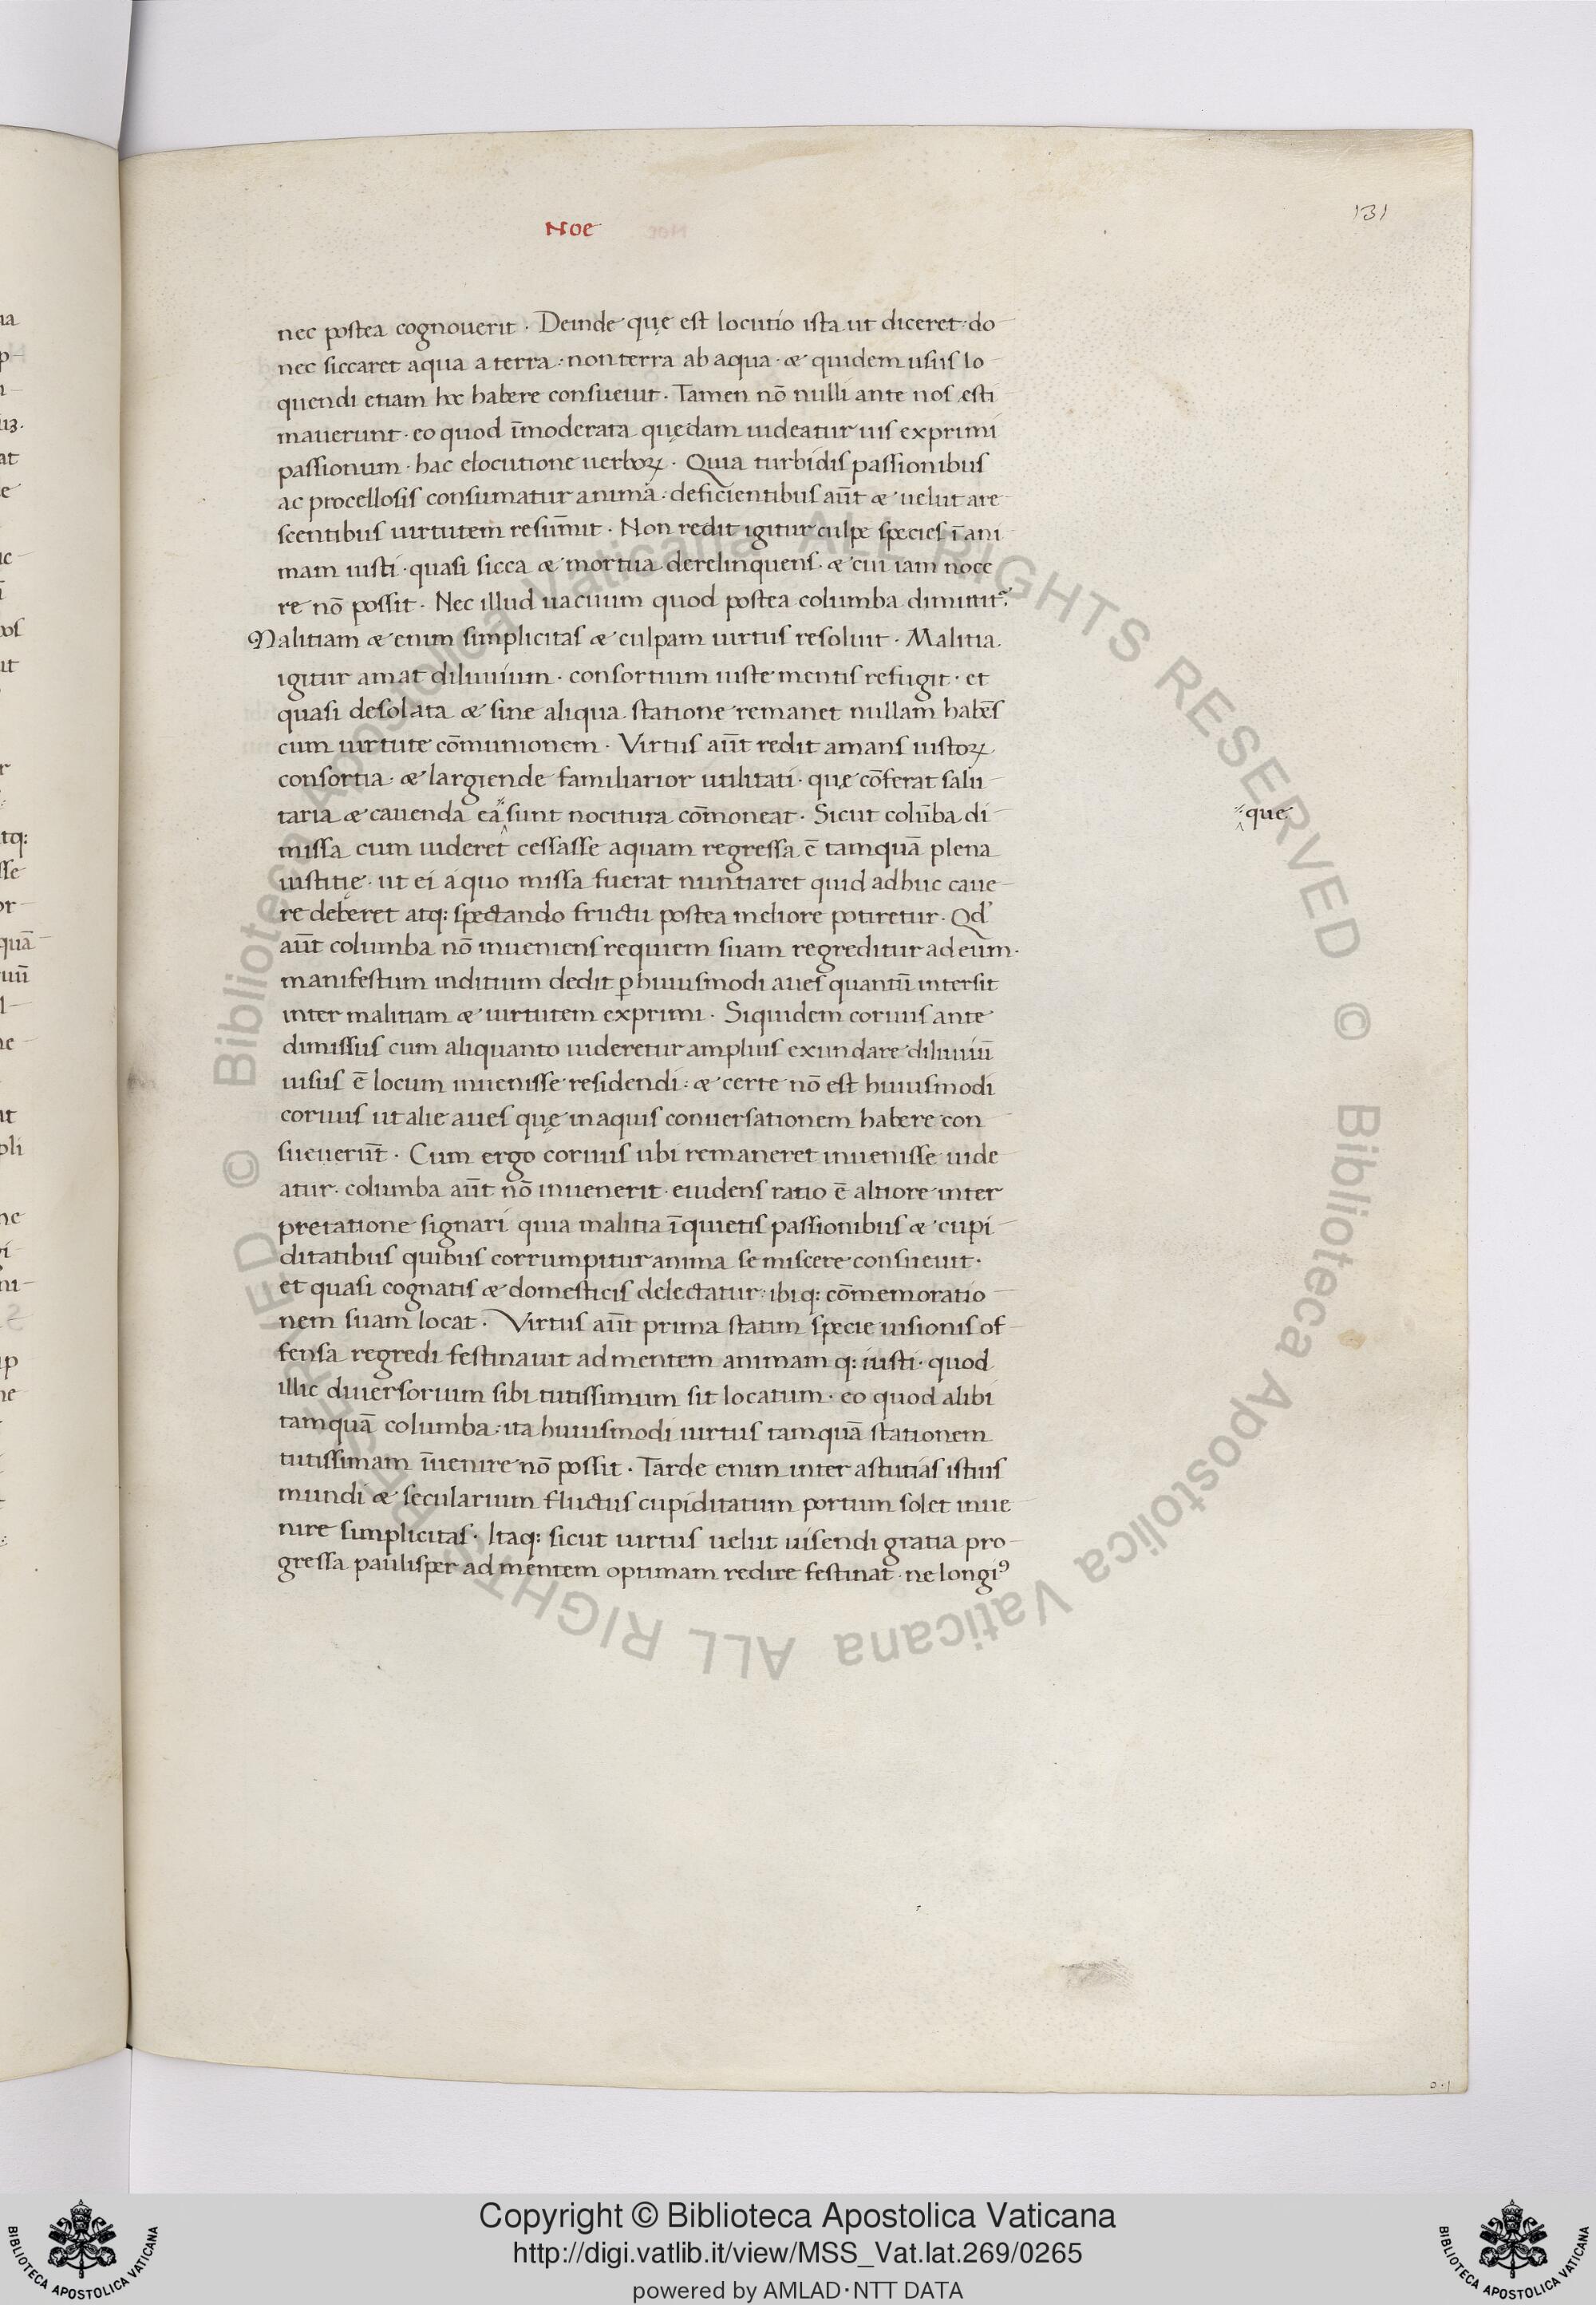 Noe
131
nec postea cognouerit · Deinde quę est locutio ista ut diceret · do
nec siccaret aqua a terra · non terra ab aqua · æ quidem usus lo
quendi etiam hoc habere consueuit · Tamen nō nulli ante nos esti
mauerunt · eo quod īmoderata quędam uideatur uis exprimi
passionum · hac elocutione uerboꝝ · Quia turbidis passionibus
ac procellosis consumatur anima · deficientibus aūt æ uelut are
scentibus uirtutem resūmit · Non redit igitur culpe species ī ani
mam iusti · quasi sicca æ mortua derelinquens · æ cui iam noce
re nō possit · Nec illud uacuum quod postea columba dimittit᷑ ·
Malitiam æ enim simplicitas æ culpam uirtus resoluit · Malitia
igitur amat diluuium · consortium iuste mentis refugit · et
quasi desolata æ sine aliqua statione remanet nullam habēs
cum uirtute cōmunionem · Virtus aūt redit amans iustoꝝ
consortia · æ largiende familiarior utilitati · quę cōferat salu
taria æ cauenda ea sunt nocitura cōmoneat · Sicut colūba di
que
missa cum uideret cessasse aquam regressa ē tamquā plena
iustitię · ut ei a quo missa fuerat nuntiaret quid adhuc caue
re deberet atq: spectando fructu postea meliore potiretur · Qd'
aūt columba nō inueniens requiem suam regreditur ad eum ·
manifestum inditium dedit ꝑ huiusmodi aues quantū intersit
inter malitiam æ uirtutem exprimi · Siquidem coruus ante
dimissus cum aliquanto uideretur amplius exundare diluuiū
uisus ē locum inuenisse residendi : æ certe nō est huiusmodi
coruus ut alie aues quę in aquis conuersationem habere con
sueuerūt · Cum ergo coruus ubi remaneret inuenisse uide
atur · columba aūt nō inuenerit · euidens ratio ē altiore inter
pretatione signari quia malitia īquietis passionibus æ cupi
ditatibus quibus corrumpitur anima se miscere consueuit ·
et quasi cognatis æ domesticis delectatur : ibiq: cōmemoratio
nem suam locat · Virtus aūt prima statim specie uisionis of
fensa regredi festinauit ad mentem animam q: iusti · quod
illic diuersorium sibi tutissimum sit locatum · eo quod alibi
tamquā columba : ita huiusmodi uirtus tamquā stationem
tutissimam īuenire nō possit · Tarde enim inter astutias istius
mundi æ secularium fluctus cupiditatum portum solet inue
nire simplicitas · Itaq: sicut uirtus uelut uisendi gratia pro
gressa paulisper ad mentem optimam redire festinat · ne longiꝰ
Copyright © Biblioteca Apostolica Vaticana
http://digi.vatlib.it/view/MSS_Vat.lat.269/0265
powered by AMLAD·NTT DATA